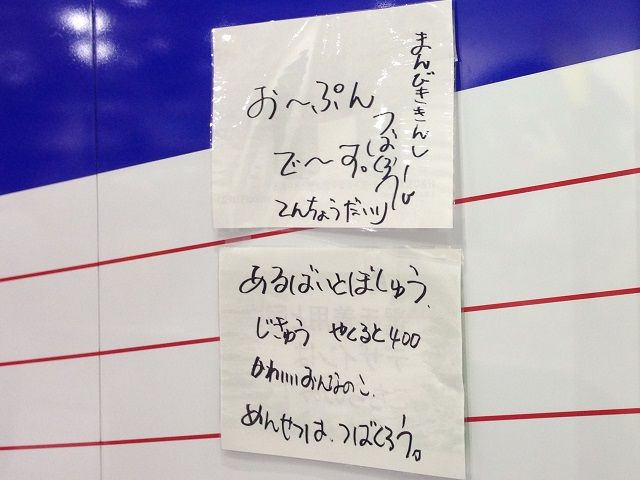 まんびききんし
お〜ぷん
で〜す。
つばくろう。
てんちょうだいり
あるばいとぼしゅう。
じきゅう やくると400
かわいいおんなのこ
めんせつは、つばくろう。